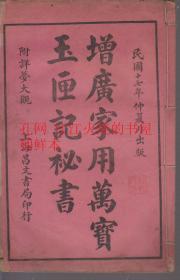 民國十七年仲夏出版
增廣家用萬寶
玉匣記祕書
附詳夢大觀
上海昌文書局印行
孔网
的书屋